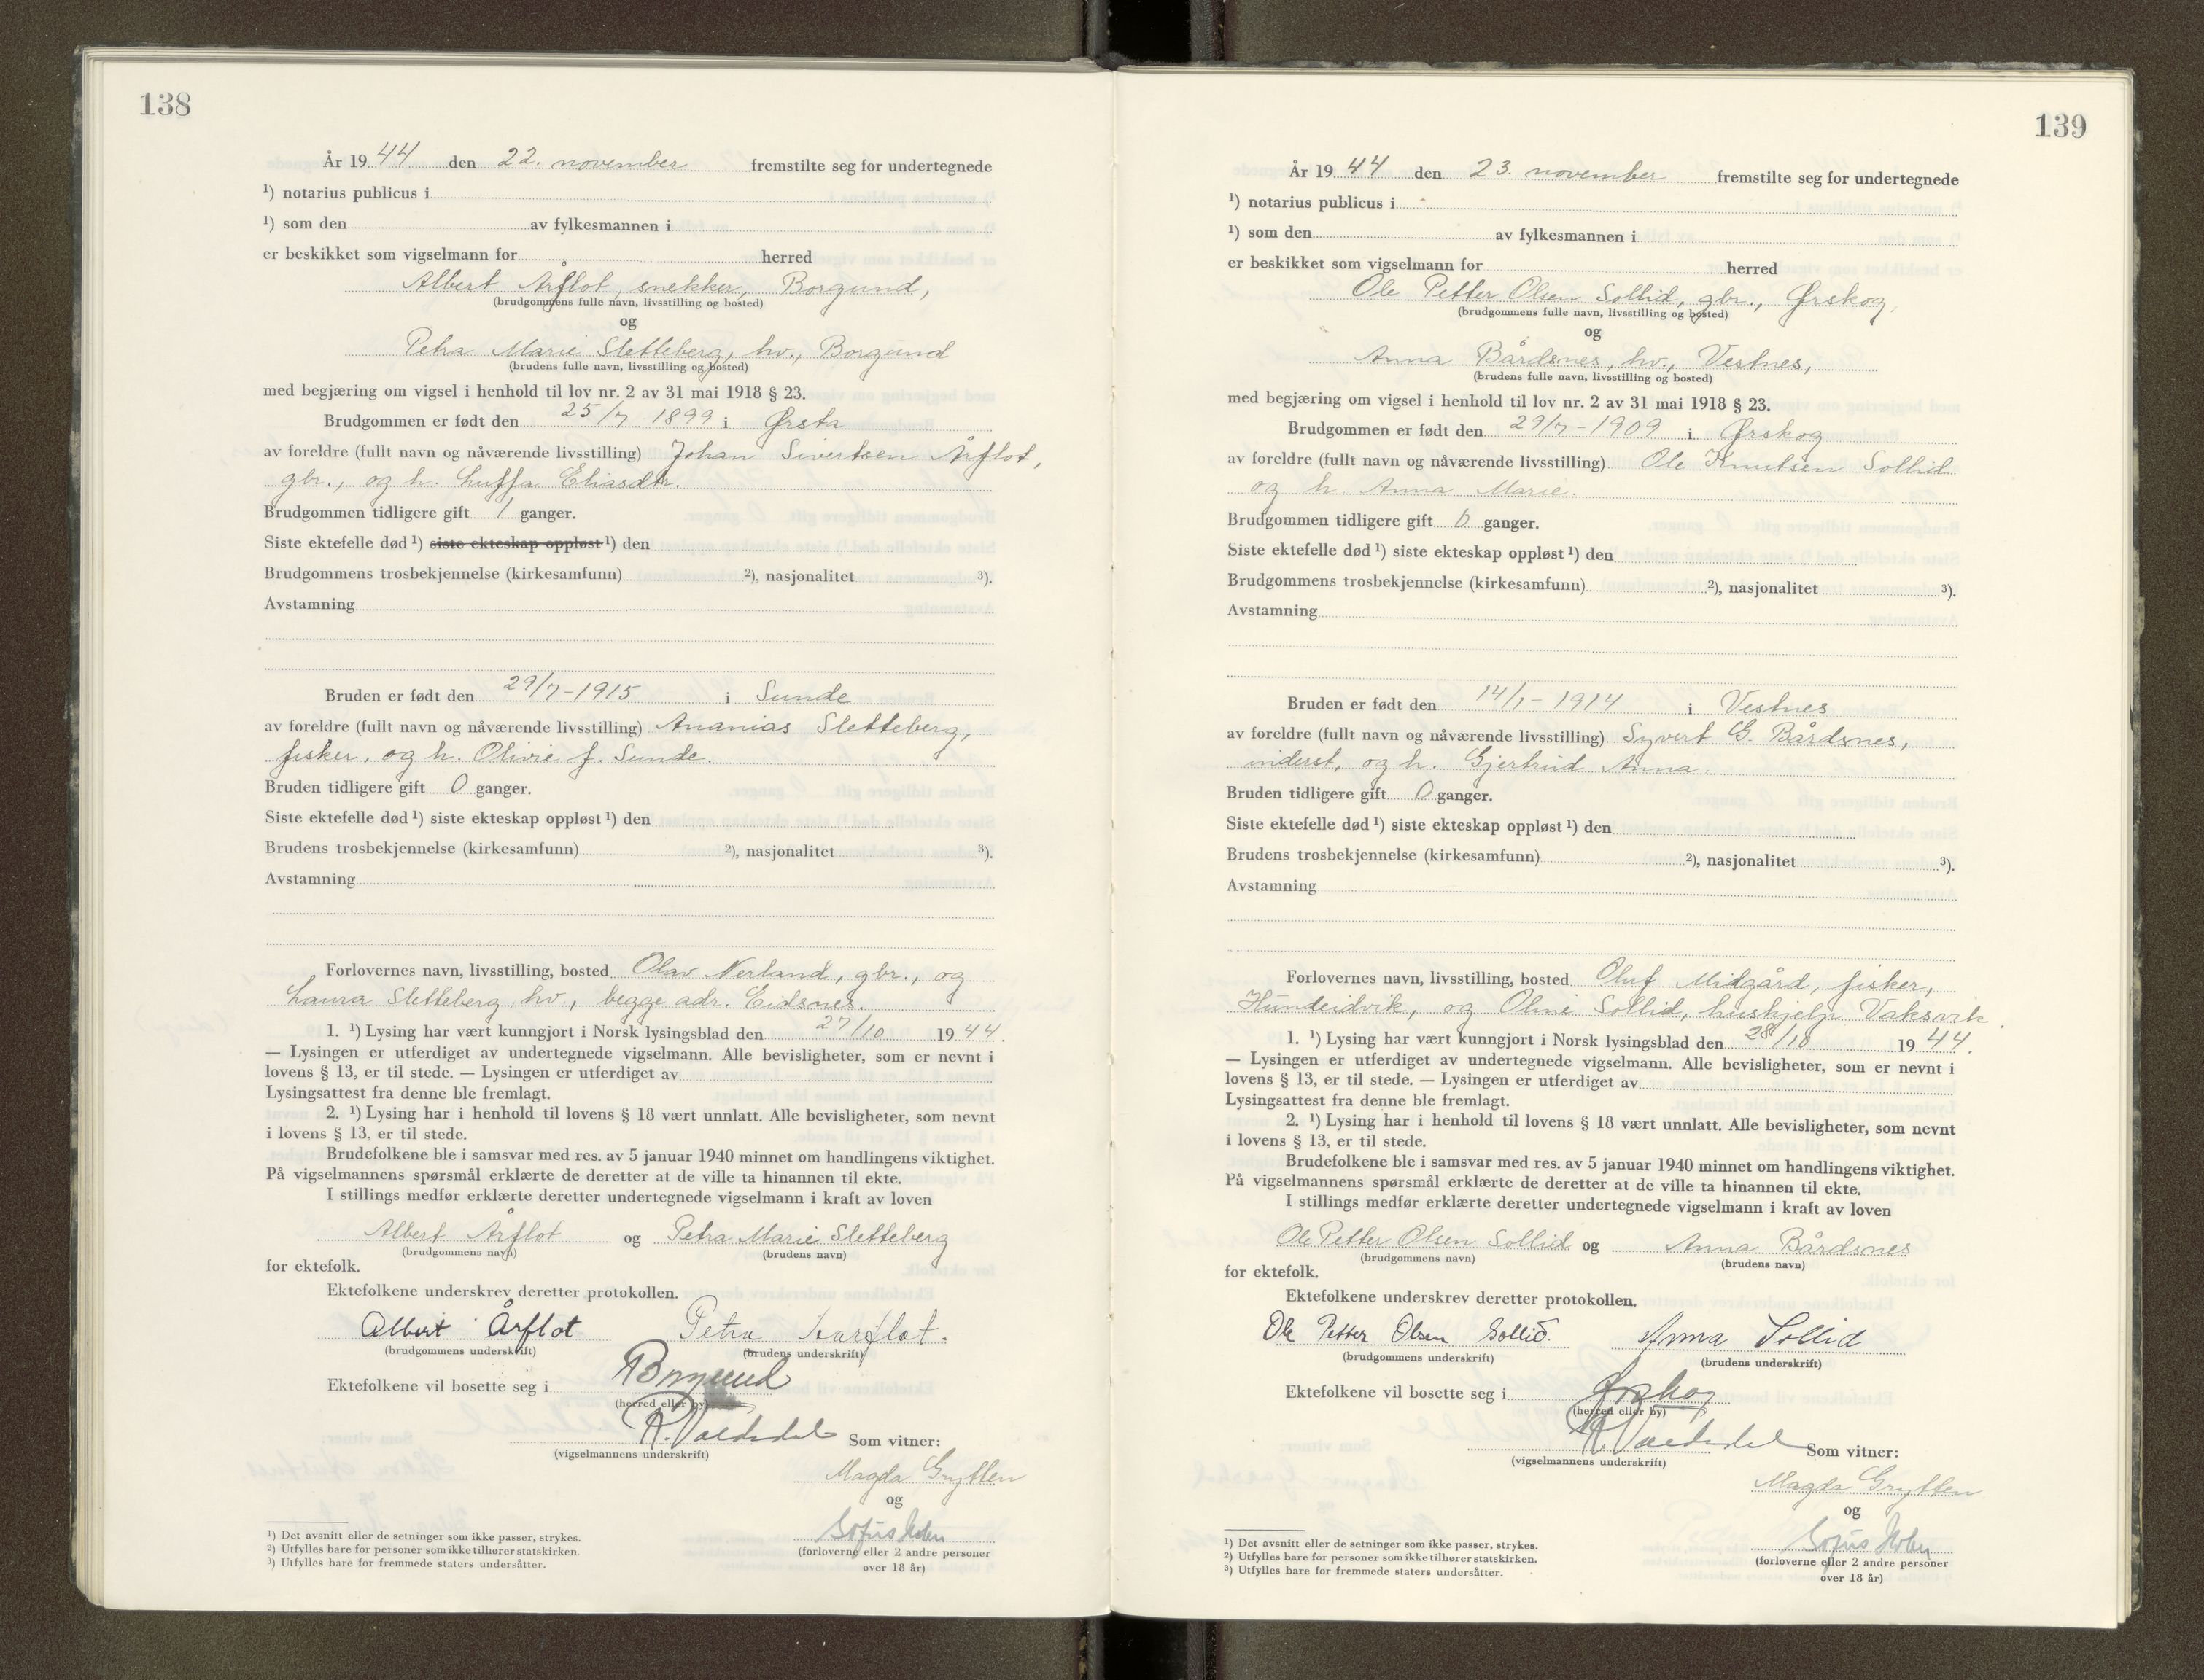 138
År 19 44 den 22. november fremstilte seg for undertegnede
¹) notarius publicus i
¹) som den av fylkesmannen i
er beskikket som vigselmann for herred
Albert Årflot, snekker, Borgund,
(brudgommens fulle navn, livsstilling og bosted)
og
Petra Marie Sletteberg, hv., Borgund
(brudens fulle navn, livsstilling og bosted)
med begjæring om vigsel i henhold til lov nr. 2 av 31 mai 1918 § 23.
Brudgommen er født den 25/7 1899 i Ørsta
av foreldre (fullt navn og nåværende livsstilling) Johan Sivertsen Årflot,
gbr., og h. Luffa Eliasdtr.
Brudgommen tidligere gift 1 ganger.
Siste ektefelle død ¹) siste ekteskap oppløst ¹) den
Brudgommens trosbekjennelse (kirkesamfunn) ²), nasjonalitet ³).
Avstamning
Bruden er født den 29/7-1915 i Sunde
av foreldre (fullt navn og nåværende livsstilling) Ananias Sletteberg,
fisker, og h. Olivie f. Sunde.
Bruden tidligere gift 0 ganger.
Siste ektefelle død ¹) siste ekteskap oppløst ¹) den
Brudens trosbekjennelse (kirkesamfunn) ²), nasjonalitet ³).
Avstamning
Forlovernes navn, livsstilling, bosted Olav Nerland, gbr., og
Laura Sletteberg, hv., begge adr. Eidsnes.
1. ¹) Lysing har vært kunngjort i Norsk lysingsblad den 27/10 19 44.
— Lysingen er utferdiget av undertegnede vigselmann. Alle bevisligheter, som er nevnt i
lovens § 13, er til stede. — Lysingen er utferdiget av
Lysingsattest fra denne ble fremlagt.
2. ¹) Lysing har i henhold til lovens § 18 vært unnlatt. Alle bevisligheter, som nevnt
i lovens § 13, er til stede.
Brudefolkene ble i samsvar med res. av 5 januar 1940 minnet om handlingens viktighet.
På vigselmannens spørsmål erklærte de deretter at de ville ta hinannen til ekte.
I stillings medfør erklærte deretter undertegnede vigselmann i kraft av loven
Albert Årflot og Petra Marie Sletteberg
(brudgommens navn) (brudens navn)
for ektefolk.
Ektefolkene underskrev deretter protokollen.
Albert Årflot Petra Aarflot.
(brudgommens underskrift) (brudens underskrift)
Ektefolkene vil bosette seg i Borgund
(herred eller by)
Som vitner:
(vigselmannens underskrift)
Magda Grytten
og
Sofus
(forloverne eller 2 andre personer
over 18 år)
¹) Det avsnitt eller de setninger som ikke passer, strykes.
²) Utfylles bare for personer som ikke tilhører statskirken.
³) Utfylles bare for fremmede staters undersåtter.
139
År 19 44 den 23. november fremstilte seg for undertegnede
¹) notarius publicus i
¹) som den av fylkesmannen i
er beskikket som vigselmann for herred
Ole Petter Olsen Sollid, gbr., Ørskog,
(brudgommens fulle navn, livsstilling og bosted)
og
Anna Bårdsnes, hv., Vestnes,
(brudens fulle navn, livsstilling og bosted)
med begjæring om vigsel i henhold til lov nr. 2 av 31 mai 1918 § 23.
Brudgommen er født den 29/7-1909 i Ørskog
av foreldre (fullt navn og nåværende livsstilling) Ole Knutsen Sollid
og h. Anna Marie.
Brudgommen tidligere gift 0 ganger.
Siste ektefelle død ¹) siste ekteskap oppløst ¹) den
Brudgommens trosbekjennelse (kirkesamfunn) ²), nasjonalitet ³).
Avstamning
Bruden er født den 14/1-1914 i Vestnes
av foreldre (fullt navn og nåværende livsstilling) Syvert G. Bårdsnes,
inderst, og h. Gjertrud Anna
Bruden tidligere gift 0 ganger.
Siste ektefelle død ¹) siste ekteskap oppløst ¹) den
Brudens trosbekjennelse (kirkesamfunn) ²), nasjonalitet ³).
Avstamning
Forlovernes navn, livsstilling, bosted Oluf Midgård, fisker,
Hundeidvik, og Oline Sollid, hushjelp Vaksvik.
1. ¹) Lysing har vært kunngjort i Norsk lysingsblad den 28/10 19 44.
— Lysingen er utferdiget av undertegnede vigselmann. Alle bevisligheter, som er nevnt i
lovens § 13, er til stede. — Lysingen er utferdiget av
Lysingsattest fra denne ble fremlagt.
2. ¹) Lysing har i henhold til lovens § 18 vært unnlatt. Alle bevisligheter, som nevnt
i lovens § 13, er til stede.
Brudefolkene ble i samsvar med res. av 5 januar 1940 minnet om handlingens viktighet.
På vigselmannens spørsmål erklærte de deretter at de ville ta hinannen til ekte.
I stillings medfør erklærte deretter undertegnede vigselmann i kraft av loven
Ole Petter Olsen Sollid og Anna Bårdsnes
(brudgommens navn) (brudens navn)
for ektefolk.
Ektefolkene underskrev deretter protokollen.
Ole Petter Olsen Sollid. Anna Sollid
(brudgommens underskrift) (brudens underskrift)
Ektefolkene vil bosette seg i Ørskog
(herred eller by)
Som vitner:
(vigselmannens underskrift)
Magda Grytten
og
Sofus
(forloverne eller 2 andre personer
over 18 år)
¹) Det avsnitt eller de setninger som ikke passer, strykes.
²) Utfylles bare for personer som ikke tilhører statskirken.
³) Utfylles bare for fremmede staters undersåtter.